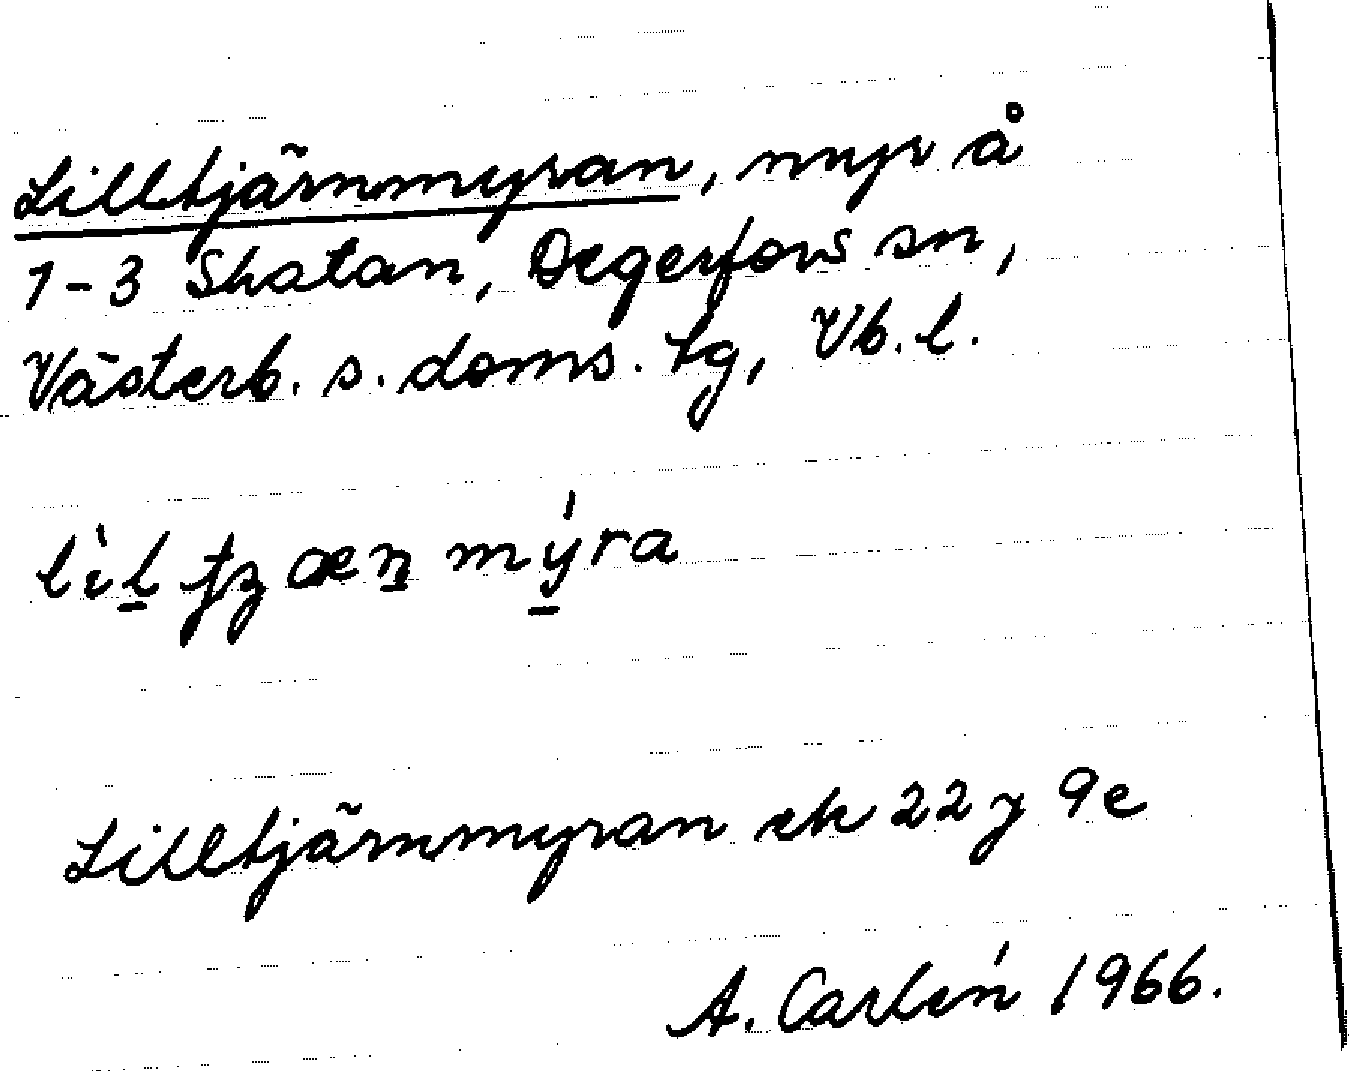 Lilltjärnmyran, myr å
1-3 Skatan, Degerfors sn,
Västerb. s. doms. tg, Vb. l.
lìl̲ tʒæn̲ mý̲ra
Lilltjärnmyran ek 22 J 9e
A. Carlén 1966.